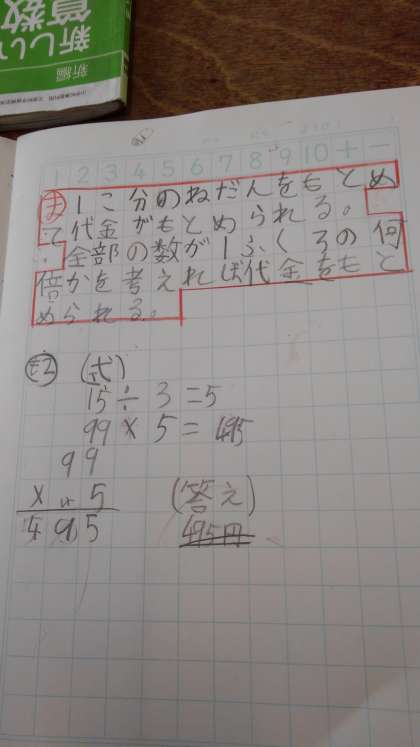 新しい
算数
新編
1 2 3 4 5 6 7 8 9 10 + −
ま 1こ分のねだんをもとめ
て代金がもとめられる。
・全部の数が1ふくろの何
倍かを考えれば代金をもと
められる。
(式)
15÷3=5
99×5=495
99
× 5
495
(答え)
495円